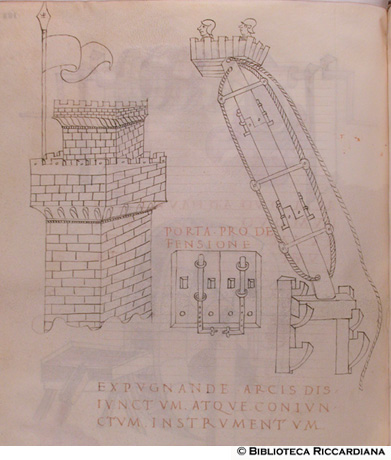 PORTA PRO DE
FENSIONE
EXPVGNANDE ARCIS DIS
IVNCTVM. ATQVE CONIVN
CTVM INSTRVMENTVM.
© BIBLIOTECA RICCARDIANA